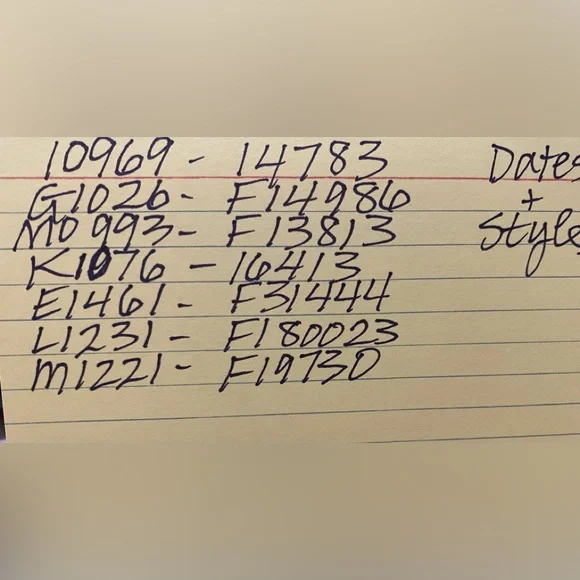 10969 - 14783
G1026 - F14986
M0993 - F13813
K1076 - 16413
E1461 - F31444
L1231 - F180023
M1221 - F19730
Dates
+
Style